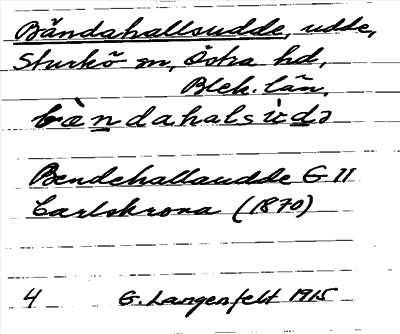 Bändahallsudde, udde,
Sturkö sn, Östra hd,
Blek. län.
bàndahalsùdə
Bendehallaudde G II
Carlskrona (1870)
4 G. Langenfelt 1915